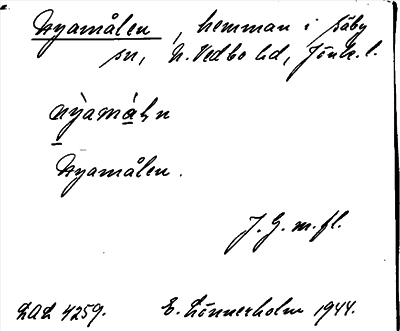 Nyamålen, hemman i Säby
sn, N. Vedbo hd, Jönk. l.
nỳamá̱ln
Nyamålen.
J. G. m. fl.
LAL 4259. E. Linnerholm 1944.